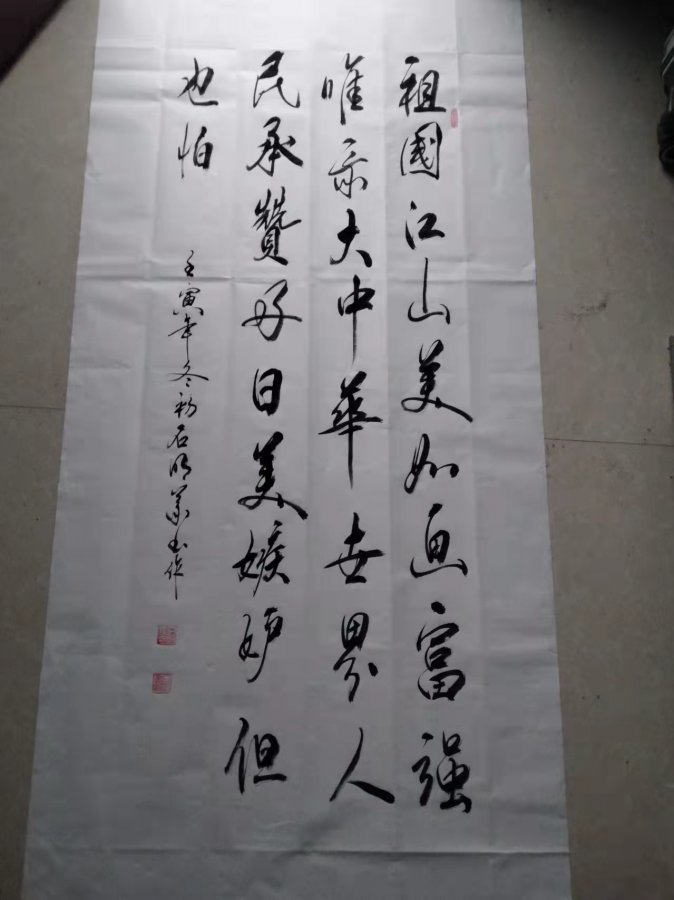 祖國江山美如画富强
唯示大中華世界人
民承贊好日美嫉妒但
也怕
壬寅年冬初石明業书作